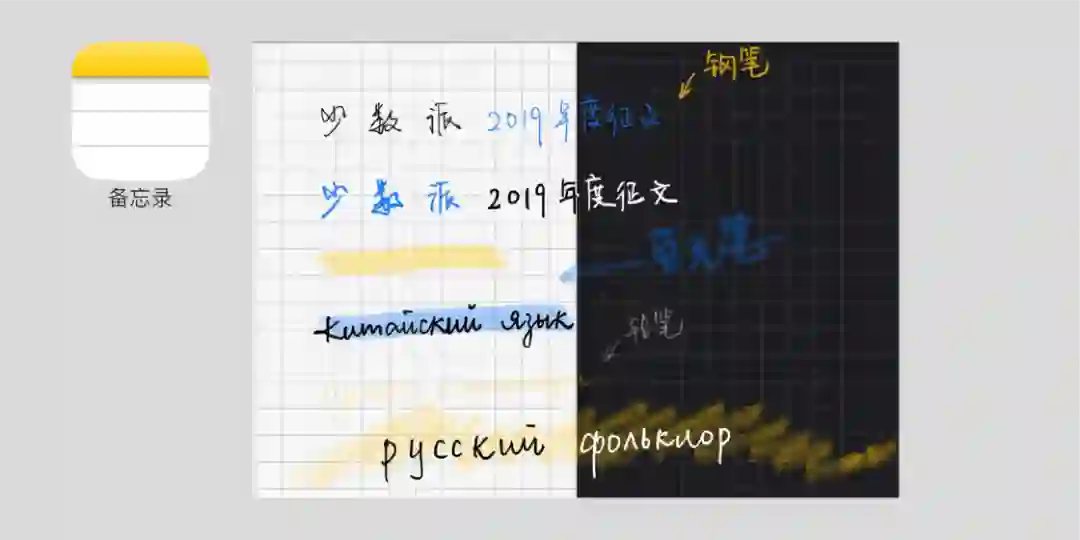 备忘录
钢笔
少数派 2019年度征文
少数派 2019年度征文
китайский язык
铅笔
русский фольклор